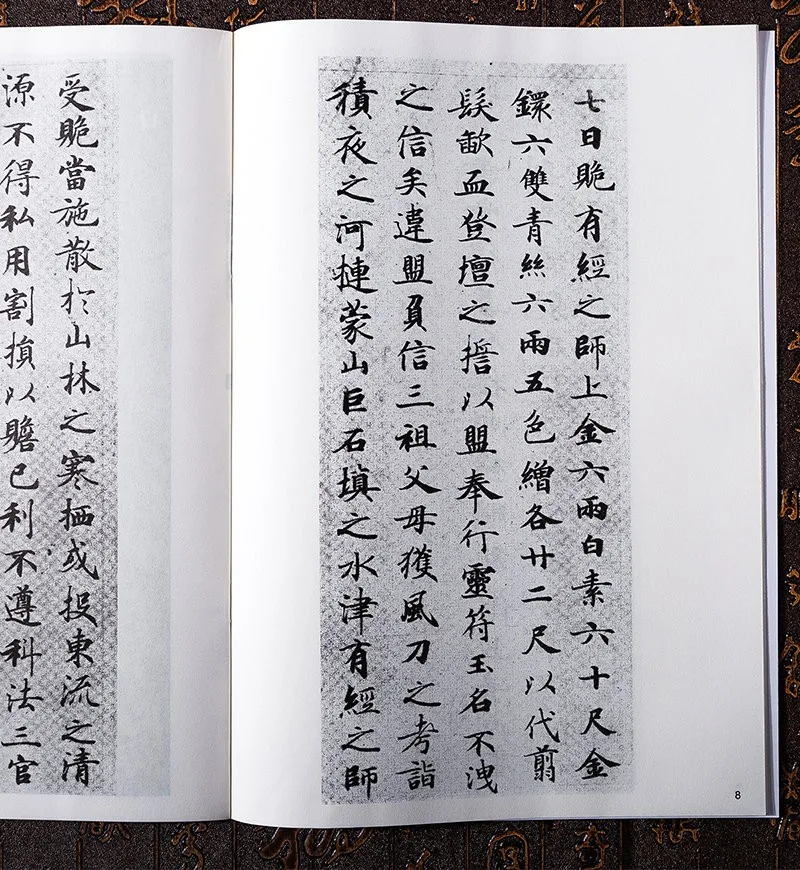 七日有經之師上金六兩白素六十尺金
鐶六雙青絲六兩五色繒各廿二尺以代翦
髮歃血登壇之誓以盟奉行靈符玉名不洩
之信矣違盟負信三祖父母獲風刀之考詣
積夜之河摙蒙山巨石填之水津有經之師
8
受當施散於山林之寒栖或投東流之清
源不得私用割損以贍己利不遵科法三官